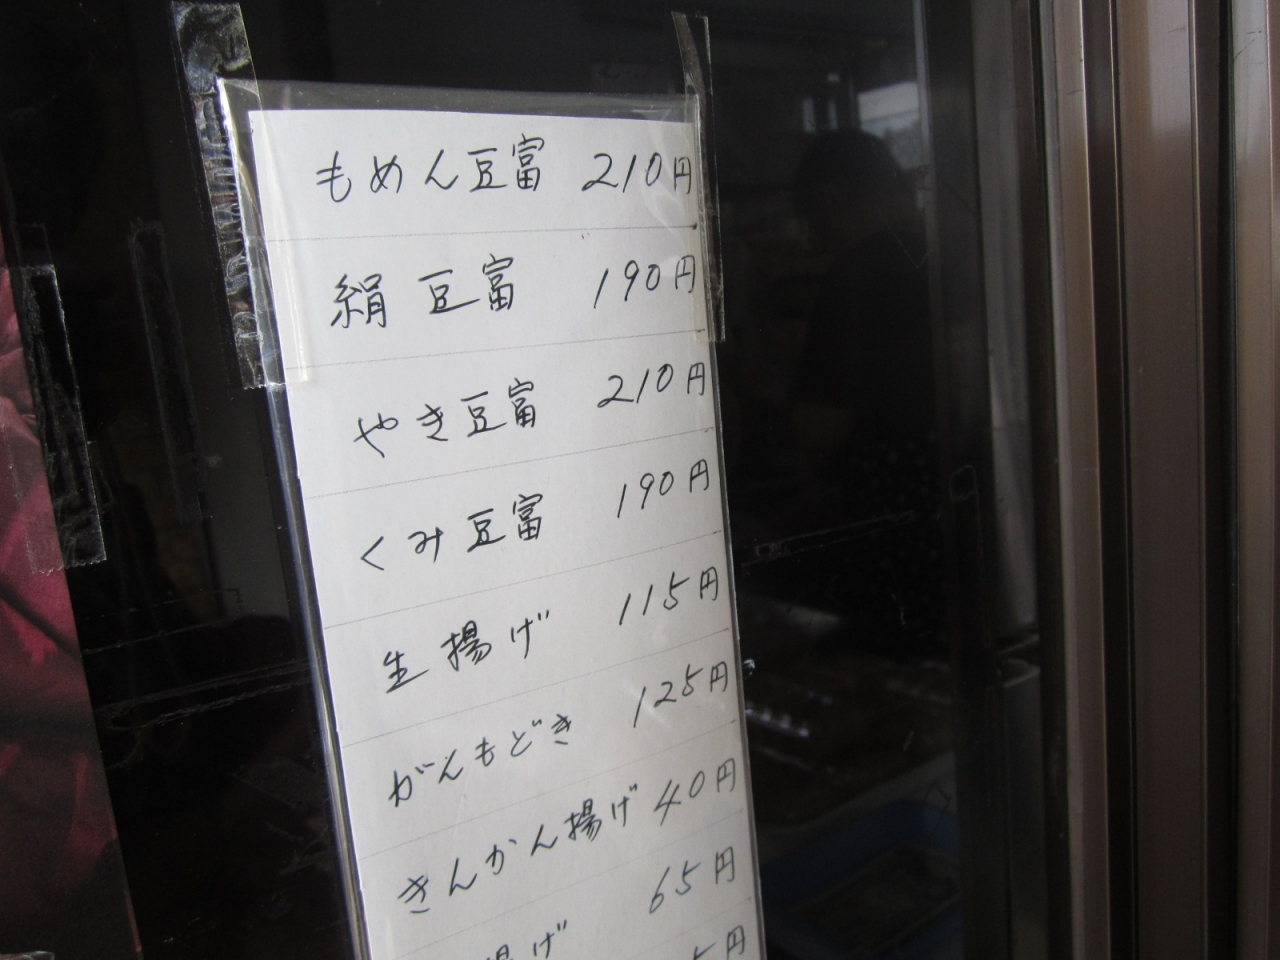 もめん豆富 210円
絹 豆富 190円
やき豆富 210円
くみ豆富 190円
生揚げ 115円
がんもどき 125円
きんかん揚げ 40円
揚げ 65円
5円